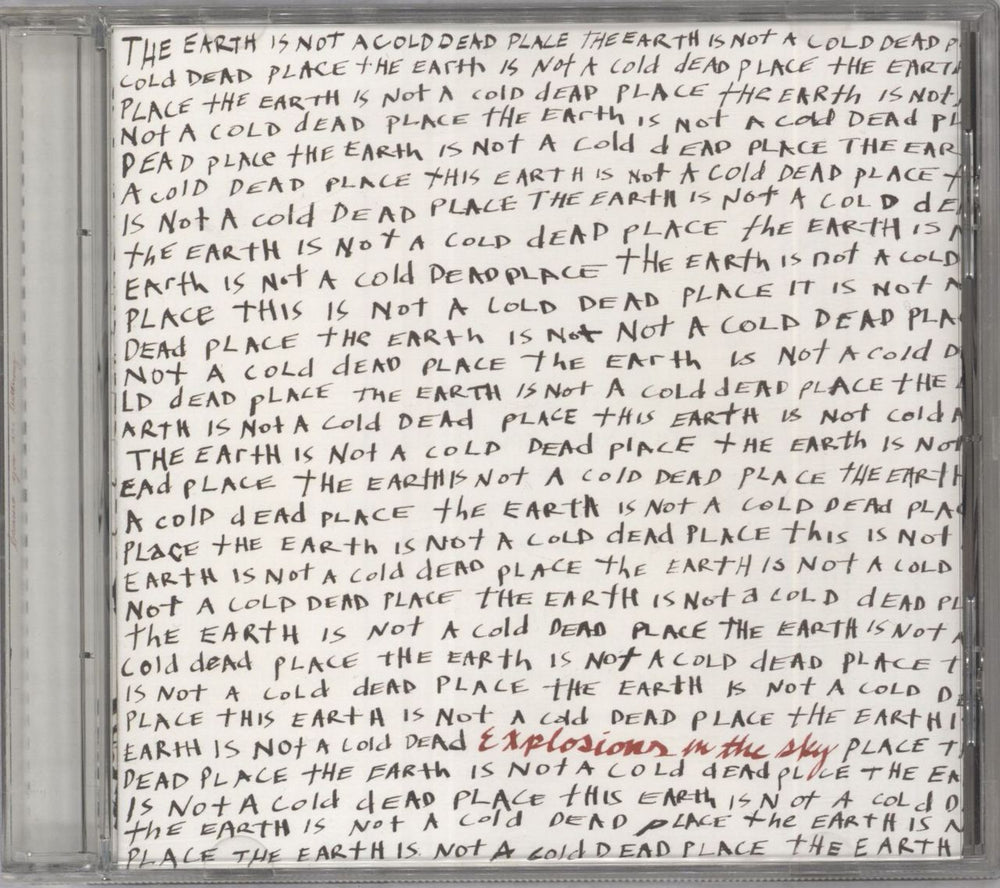 THE EARTH IS NOT A COLD DEAD PLACE THE EARTH IS NOT A COLD DEAD P
COLD DEAD PLACE THE EARTH IS NOT A COLD DEAD PLACE THE EARTH
PLACE THE EARTH IS NOT A COLD DEAD PLACE THE EARTH IS NOT
NOT A COLD DEAD PLACE THE EARTH IS NOT A COLD DEAD PL
DEAD PLACE THE EARTH IS NOT A COLD DEAD PLACE THE EAR
A COLD DEAD PLACE THIS EARTH IS NOT A COLD DEAD PLACE T
IS NOT A COLD DEAD PLACE THE EARTH IS NOT A COLD DE
THE EARTH IS NOT A COLD DEAD PLACE THE EARTH IS
EARTH IS NOT A COLD DEAD PLACE THE EARTH IS NOT A COLD
PLACE THIS IS NOT A COLD DEAD PLACE IT IS NOT A
DEAD PLACE THE EARTH IS NOT NOT A COLD DEAD PLA
NOT A COLD DEAD PLACE THE EARTH IS NOT A COLD D
LD DEAD PLACE THE EARTH IS NOT A COLD DEAD PLACE THE
ARTH IS NOT A COLD DEAD PLACE THIS EARTH IS NOT COLD A
THE EARTH IS NOT A COLD DEAD PLACE THE EARTH IS NOT
EAD PLACE THE EARTH IS NOT A COLD DEAD PLACE THE EARTH
A COLD DEAD PLACE THE EARTH IS NOT A COLD DEAD PLAC
PLACE THE EARTH IS NOT A COLD DEAD PLACE THIS IS NOT
EARTH IS NOT A COLD DEAD PLACE THE EARTH IS NOT A COLD
NOT A COLD DEAD PLACE THE EARTH IS NOT A COLD DEAD PL
THE EARTH IS NOT A COLD DEAD PLACE THE EARTH IS NOT A
COLD DEAD PLACE THE EARTH IS NOT A COLD DEAD PLACE T
IS NOT A COLD DEAD PLACE THE EARTH IS NOT A COLD DE
PLACE THIS EARTH IS NOT A COLD DEAD PLACE THE EARTH I
EARTH IS NOT A COLD DEAD Explosions in the sky PLACE T
DEAD PLACE THE EARTH IS NOT A COLD DEAD PLACE THE EA
IS NOT A COLD DEAD PLACE THIS EARTH IS NOT A COLD D
THE EARTH IS NOT A COLD DEAD PLACE THE EARTH IS N
PLACE THE EARTH IS NOT A COLD DEAD PLACE THE EARTH